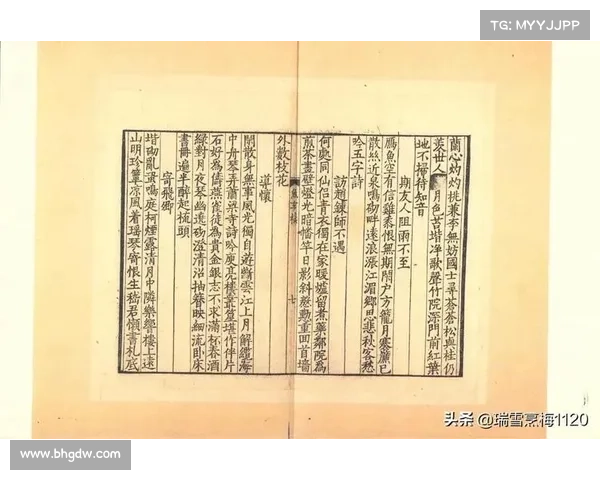 TG: MYYJJPP
蘭心灼灼桃兼李無妨國士尋蒼蒼松與桂仍
羨世人月色苔堦淨歌聲竹院深門前紅葉
地不掃待知音
期友人阻雨不至
鴈魚空有信雞黍恨無期閉户方籠月褰簾已
散絲近泉鳴砌畔遠浪漲江湄鄉思悲秋客愁
吟五字詩
訪趙鍊師不遇
何處同仙侶青衣獨在家暖爐留煮藥鄰院爲
煎茶畫壁燈光暗幡竿日影斜慇懃重回首墻
外數枝花
七
遣懷
閑散身無事風光獨自遊斷雲江上月解纜海
中舟琴弄蕭梁寺詩吟庾亮樓叢篁堪作伴片
石好爲儔燕雀徒爲貴金銀志不求滿杯春酒
綠對月夜琴幽遶砌澄清沼抽簪映細流卧床
書冊遍半醉起梳頭
寄飛卿
堦砌亂蛩鳴庭柯煙露清月中隣樂響樓上遠
山明珍簟凉風着瑶琴寄恨生嵇君懶書札底
头条 @瑞雪烹梅1120
www.bhgdw.com